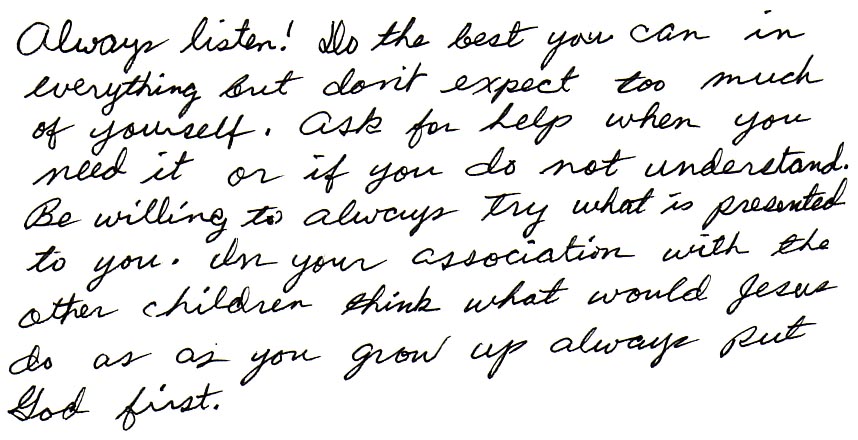 Always listen! Do the best you can in
everything but don't expect too much
of yourself. Ask for help when you
need it or if you do not understand.
Be willing to always try what is presented
to you. In your association with the
other children think what would Jesus
do as as you grow up always put
God first.